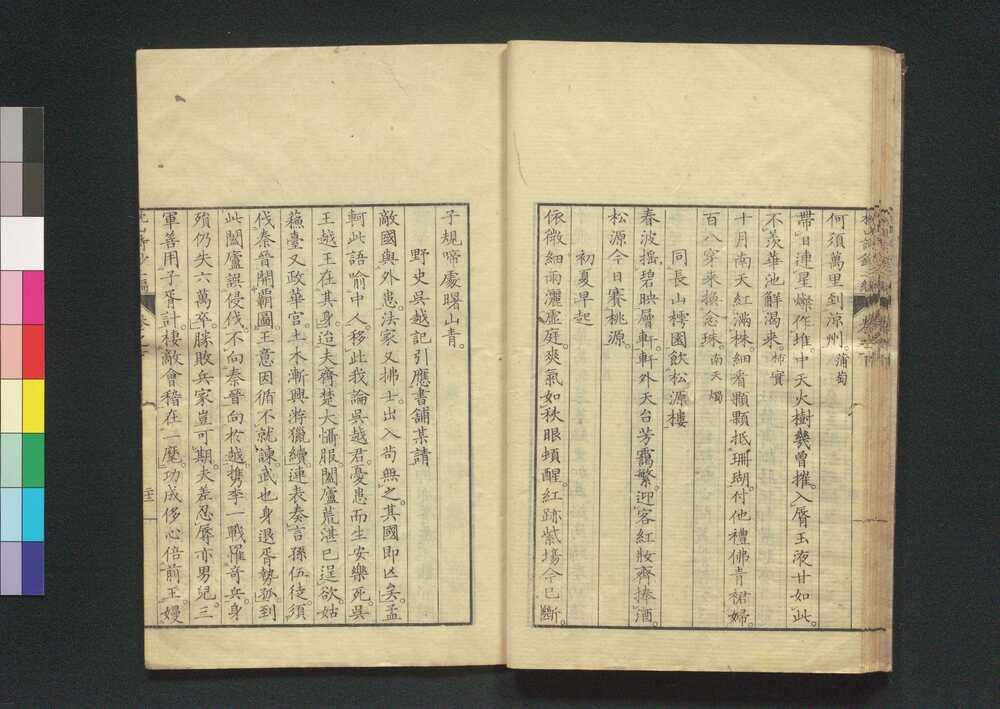 何須萬里到涼州。蒲萄
帶日連星爍作堆。中天火樹幾曾摧。入脣玉液甘如此。
不羨華池解渴来。柿實
十月南天紅滿株。細看顆顆抵珊瑚。付他禮佛青裙婦。
百八穿来換念珠。南天燭
同長山樗園飲松源樓
春波搖碧映層軒。軒外天台芳靄繁。迎客紅妝齊捧酒。
松源今日賽桃源。
初夏早起
依微細雨灑虛庭。爽氣如秋眼頓醒。紅跡紫場今已斷。
子規啼處曙山青。
野史吳越記引應書舖某請
敵國與外患。法家又拂士。出入苟無之。其國即亡矣。孟
軻此語喻中人。移此我論吳越君。憂患而生安樂死。吳
王越王在其身。迨夫齊楚大懾服。闔廬荒湛已逞欲。姑
蘇臺又政華宮。土木漸興游獵續。連表奏言孫伍徒。須
伐秦晉開霸圖。王意因循不就諫。武也身退胥勢孤。到
此闔廬誤侵伐。不向秦晉向於越。携李一戰罹奇兵。身
殞仍失六萬卒。勝敗兵家豈可期。夫差忍辱亦男兒。三
軍善用子胥計。棲敵會稽在一麾。功成侈心倍前王。嫚